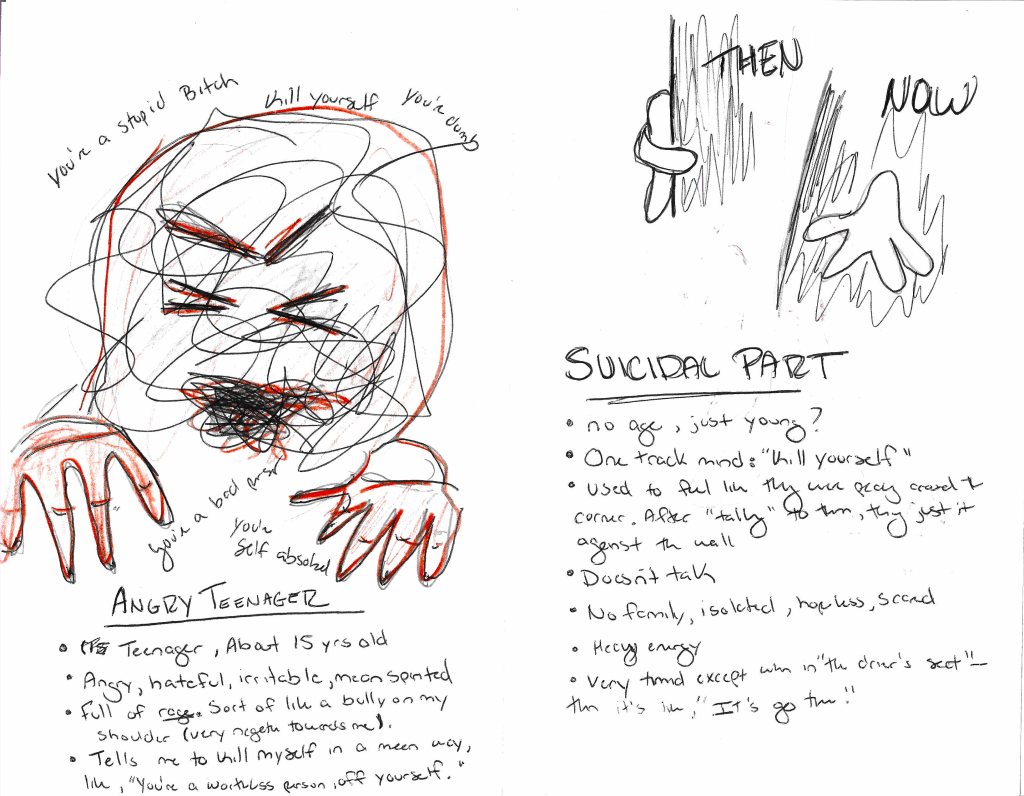 you're a stupid Bitch
kill yourself
you're dumb
you're a bad person
you're
self absorbed
ANGRY TEENAGER
• Teenager, About 15 yrs old
• Angry, hateful, irritable, mean spirited
• Full of rage. Sort of like a bully on my
shoulder (very negative towards me).
• Tells me to kill myself in a mean way,
like, "You're a worthless person, off yourself."
THEN
NOW
SUICIDAL PART
• no age, just young?
• One track mind: "kill yourself"
• Used to feel like they were around the
corner. After "talking" to them, they just sit
against the wall
• Doesn't talk
• No family, isolated, hopeless, scared
• Heavy energy
• Very timid except when in "the driver's seat" –
then it's like, "It's go time!"